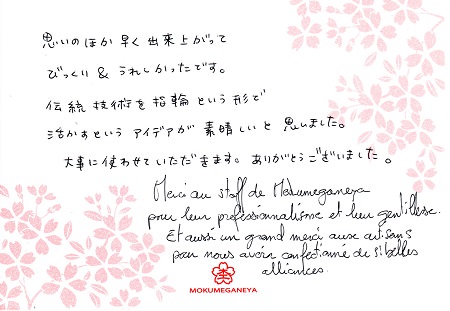 思いのほか早く出来上がって
びっくり & うれしかったです。
伝統技術を指輪という形で
活かすという アイデアが 素晴しいと 思いました。
大事に使わせていただきます。ありがとうございました。
Merci au staff de Mokumeganeya
pour leur professionnalisme et leur gentillesse.
Et aussi un grand merci aux artisans
pour nous avoir confectionné de si belles
alliances.
MOKUMEGANEYA